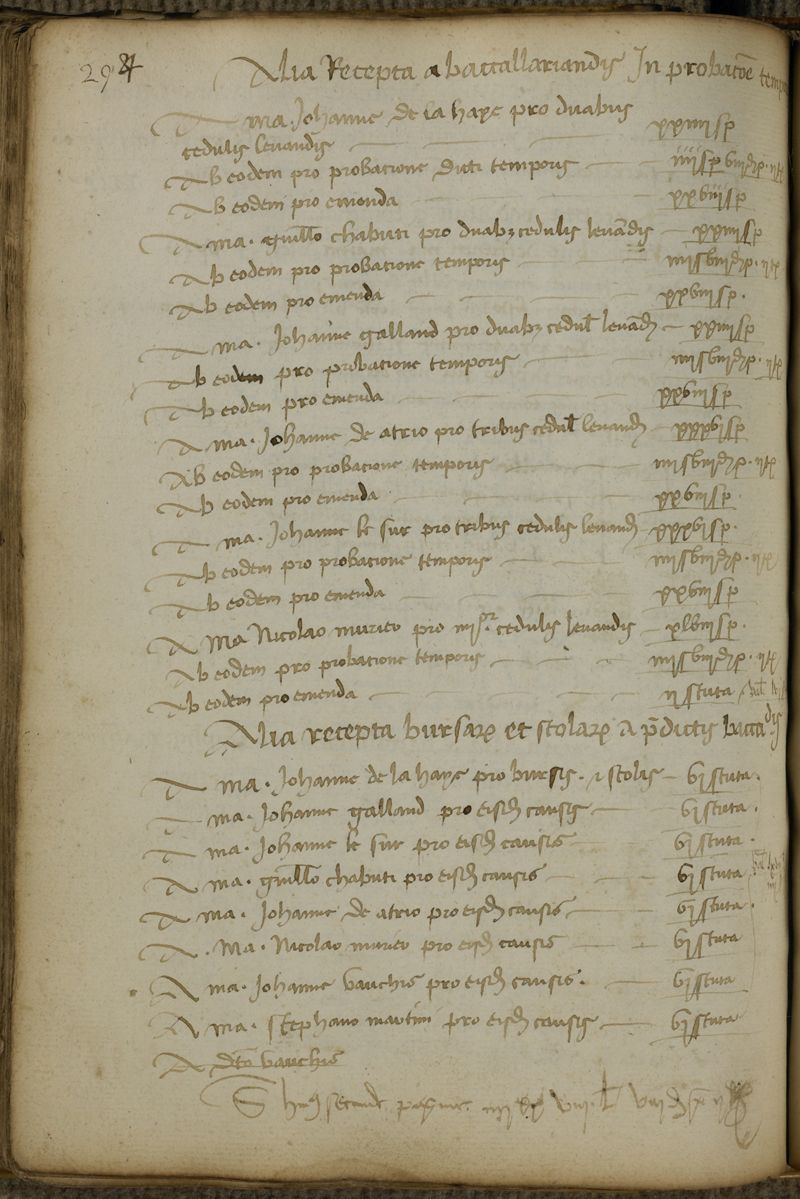 294
Alia Recepta a baccallariandis In probacõe temp
A ma. Johanne de la haye pro duabus
cedulis levandis xxiiii sp
Ab eodem pro probacione dicti temporis iiii sp viii d p.
Ab eodem pro emenda xxviii sp
A ma. guillo chabuti pro duabz cedulis levãdis xxiiii sp
Ab eodem pro probacione temporis iiii s viii d p.
Ab eodem pro emenda xxviii sp.
A ma. Johanne galland pro duabz cedul levãd xxiiii sp
Ab eodem pro probacione temporis iiii s viii d p.
Ab eodem pro emenda xxviii sp
A ma. Johanne de atrio pro tribus cedul levand xxxvi sp
Ab eodem pro probacione temporis iiii s viii d p.
Ab eodem pro emenda xxviii sp
A ma. Johanne le sur pro tribus cedulis levand xxxvi sp.
Ab eodem pro probacione temporis iiii s viii d p.
Ab eodem pro emenda xxviii sp
A Ma Nicolao murien pro iiii or cedulis levandis xlviii sp.
Ab eodem pro probacione temporis iiii s viii d p.
Ab eodem pro emenda ii scuta
Alia recepta bursar et scolar a p̃dictis bacca dis
A ma. Johanne de la haye pro bursis. et scolis vi scuta.
A ma. Johanne galland pro eisd causis vi scuta.
A ma. Johanne le sur pro eisd causis vi scuta.
A ma. guillo chabuti pro eisd causis vi scuta
A ma. Johanne de atrio pro eisd causis vi scuta.
A. Ma. Nicolao murien pro eisd causis vi scuta
A ma. Johanne vauchis pro eisd causis. vi scuta
A ma. stephano martini pro eisd causis vi scuta
A dcõ vauchis
S hui secunde pagine